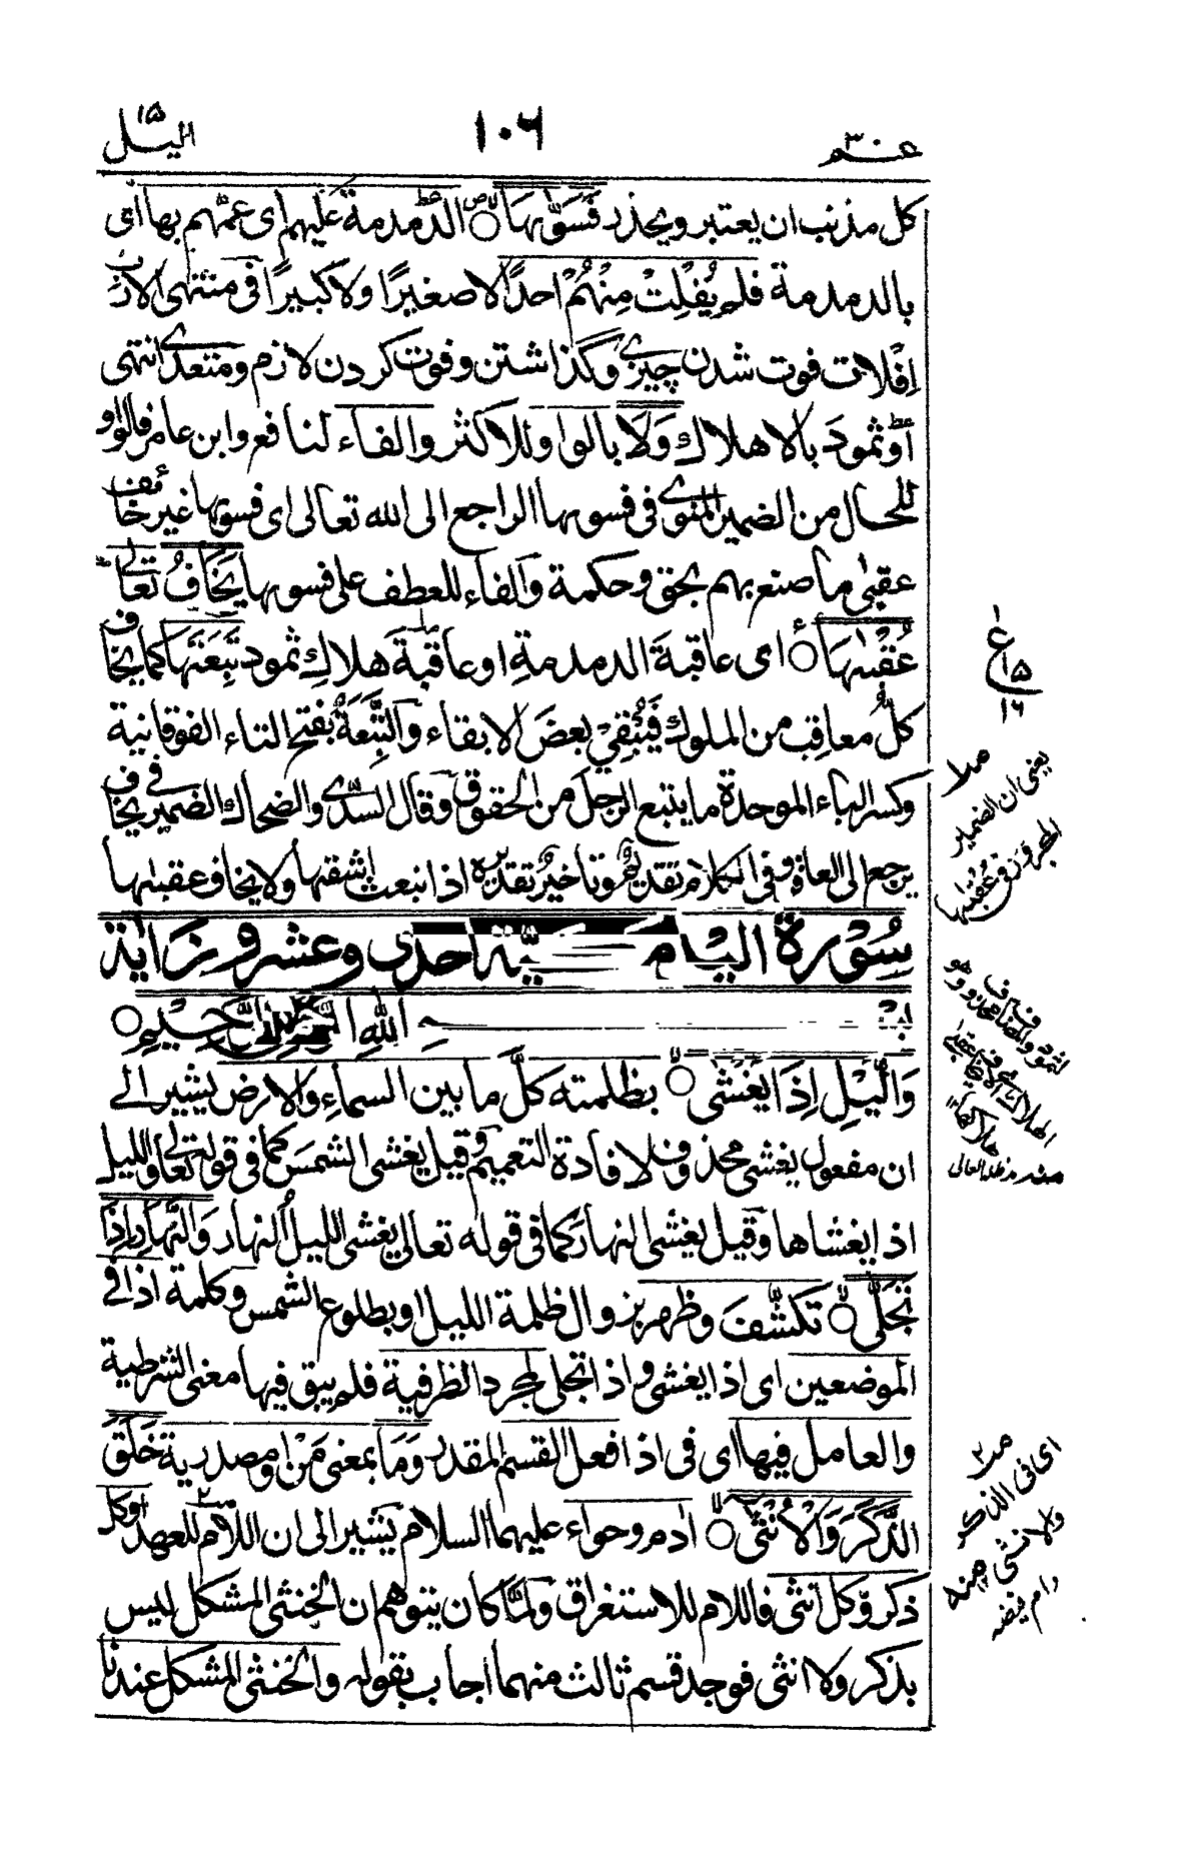 عـم ٣٠
١٠٦
اليـل
كل مذنب ان يعتبر ويحذر فَسَوّٰىهَا ○ الدمدمة عليهم اى عمّهم بها اى
بالدمدمة فلم يُفْلِتْ مِنْهُمْ احدًا لا صغيرًا ولا كبيرًا فى منتهى الارب
اِفْلات فوت شدن چيزے وگذاشتن وفوت كردن لازم ومتعدى انتهى
اَوْ ثمودَ بالاهلاك وَلَا بالواو وللاكثر والفاء لنافع وابن عامر فالواو
للحال من الضمير المنوى فى فسوىها الراجع الى الله تعالى اى فسوىها غير خائف
عقبىٰ ما صنع بهم بحق وحكمة والفاء للعطف على فسوىها يَخَافُ تعالى
عُقْبٰىهَا ○ اى عاقبة الدمدمةِ او عاقبة هلاكِ ثمود تَبِعَتَها كما يخاف
كلُّ معاقِب من الملوك فَيُبْقِىْ بعضَ الابقاء والتَّبِعَةُ بفتح التاء الفوقانية
وكسر الباء الموحدة ما يتبع الرجل من الحقوق وقال السدّى والضحاك الضمير فى يخاف
يرجع الى العاقر وفى الكلام تقديمٌ وتاخيرٌ تقديره اذ انبعث اشقٰها ولا يخاف عقبٰىها
سُوْرة اليْل مـكـيّة احدى وعشرون اٰية
بسـم الله الرّحمٰن الرّحيم ○
وَالَّيْلِ اِذَا يَغْشٰى ○ بظلمته كلَّ ما بين السماء والارض يشير الى
ان مفعول يغشى محذوف لافادة التعميم وقيل يغشى الشمس كما فى قوله تعالى والليل
اذا يغشاها وقيل يغشى النهار كما فى قوله تعالى يغشى الليل النهار وَالنَّهَارِ اِذَا
تَجَلّٰى ○ تكشَّفَ وظهر بزوال ظلمة الليل او بطلوع الشمس وكلمة اذا فى
الموضعين اى اذا يغشى واذا تجلى لمجرد الظرفية فلم يبق فيها معنى الشرطية
والعامل فيها اى فى اذا فعل القسم المقدر وَمَا بمعنى مَنْ او مصدرية خَلَقَ
الذَّكَرَ وَالْاُنْثٰى ○ ادم وحواء عليهما السلام يشير الى ان اللام للعهد او كل
ذكر وكل انثى فاللام للاستغراق ولمّا كان يتوهم ان الخنثى المشكل ليس
بذكر ولا انثى فوجد قسم ثالث منهما اجاب بقوله والخنثى المشكل عندنا
ع
١٥
١٦
يعنى ان الضمير
المجرور فى عقبٰىها
مدظله العالى
اى فى الذكر
والانثى